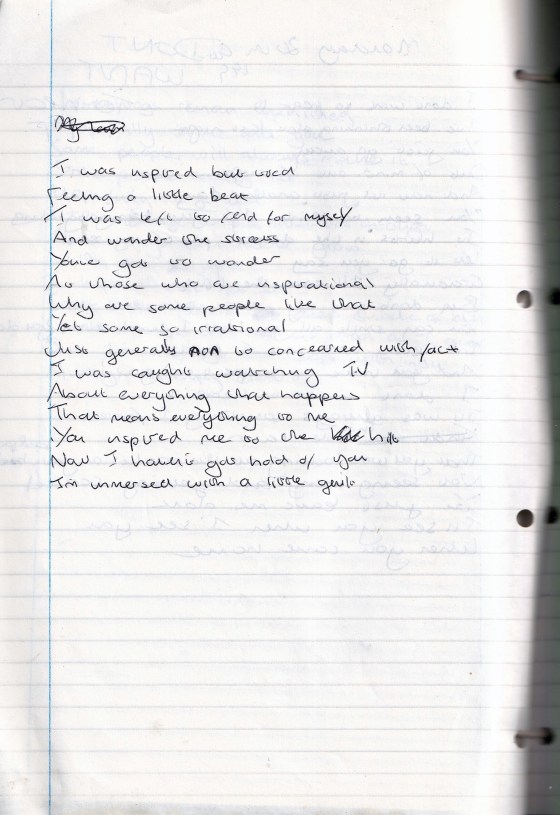 I was inspired but tired
Feeling a little beat
I was left to fend for myself
And wander the streets
You've got to wonder
As those who are inspirational
Why are some people like that
Yet some so irrational
Just generally non to concearned with fact
I was caught watching TV
About everything that happens
That means everything to me
You inspired me to the hilt
Now I haven't got hold of you
I'm immersed with a little guilt